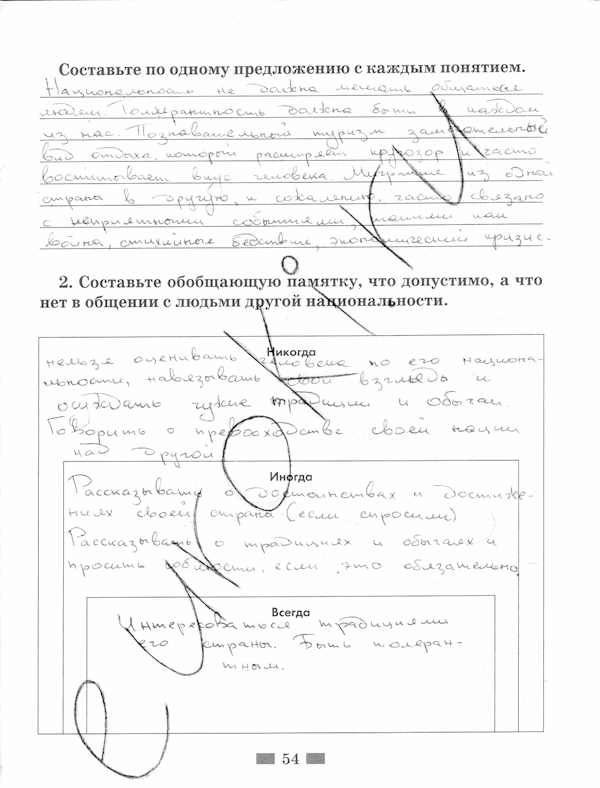 Составьте по одному предложению с каждым понятием.
Национальность не должна мешать общаться
людям. Толерантность должна быть в каждом
из нас. Познавательный туризм замечательный
вид отдыха, который расширяет кругозор и часто
воспитывает вкус человека. Миграция из одной
страны в другую, к сожалению, часто связано
с неприятными событиями, такими как
война, стихийные бедствие, экономический кризис.
2. Составьте обобщающую памятку, что допустимо, а что
нет в общении с людьми другой национальности.
Никогда
нельзя оценивать человека по его национа-
льности, навязывать свои взгляды и
осуждать чужие традиции и обычаи.
Говорить о превосходстве своей нации
над другой
Иногда
Рассказывать о достоинствах и достиже-
ниях своей страна (если спросили)
Рассказывать о традициях и обычаях и
просить соблюсти, если это обязательно.
Всегда
Интересоваться традициями
его страны. Быть толеран-
тным.
54